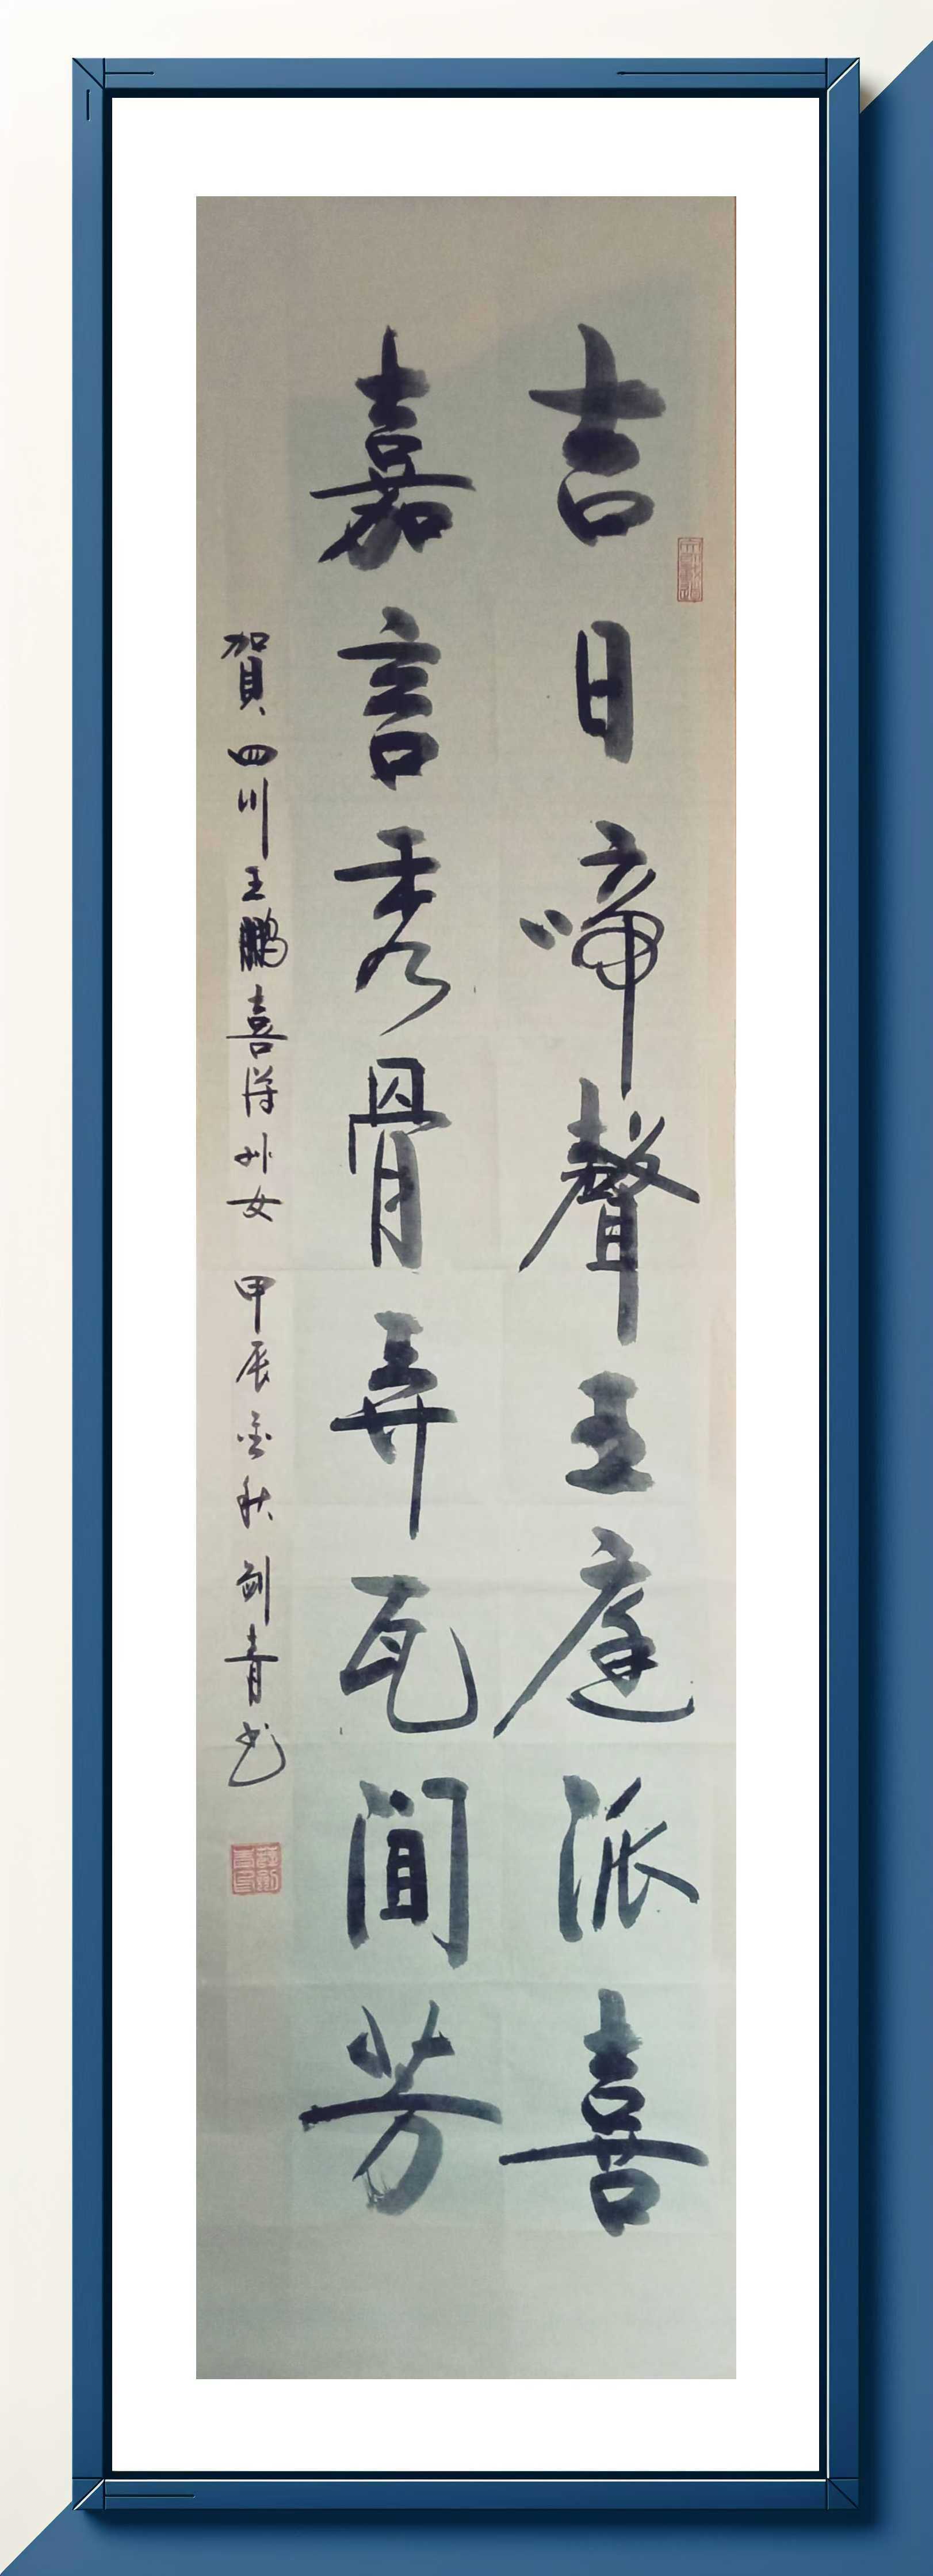 吉日啼聲王庭派喜
嘉言秀骨弄瓦聞芳
賀四川王鵬喜得外女 甲辰金秋 劍青书